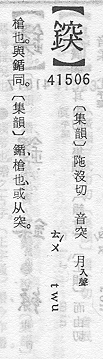 41506
〔集韻〕陁沒切 音突 月入聲
ㄊㄨˊ twu
槍也與鍎同。〔集韻〕鍎槍也或从突。